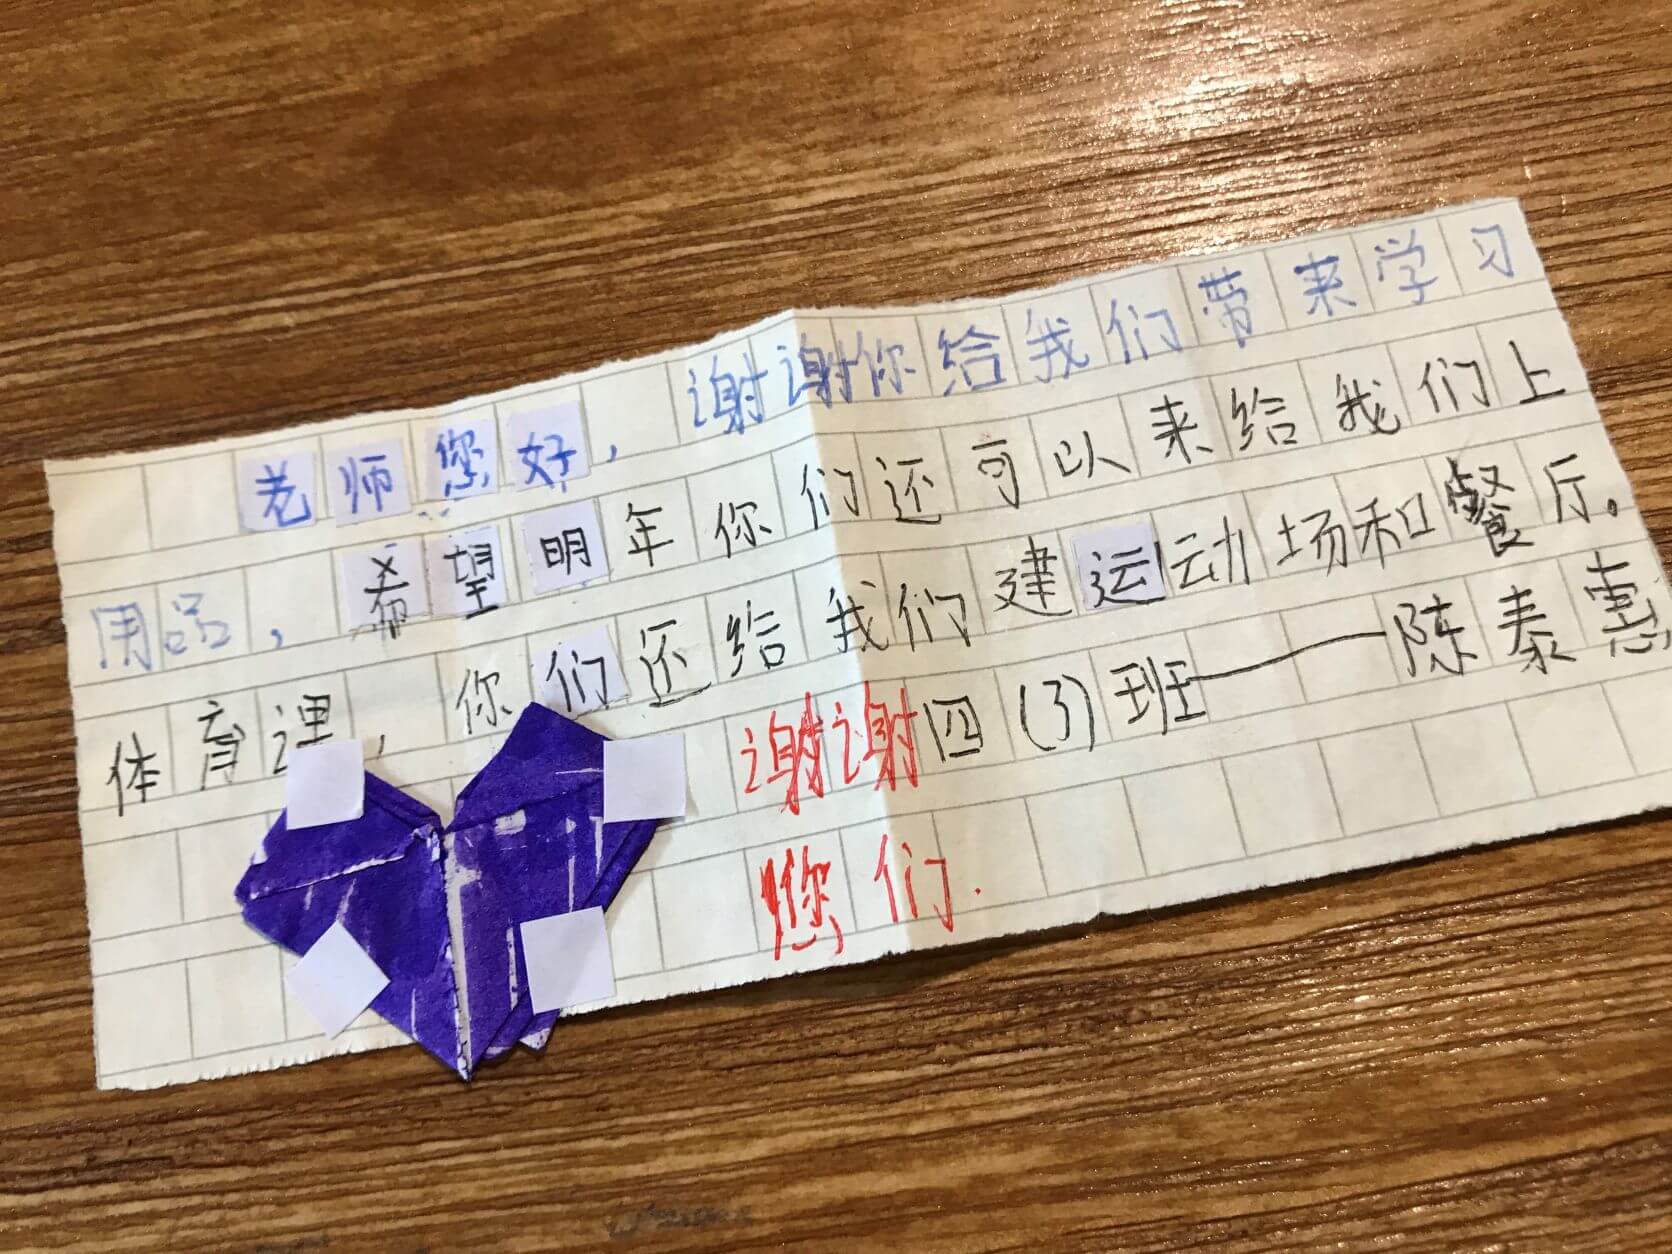 老师您好，谢谢你给我们带来学习
用品，希望明年你们还可以来给我们上
体育课，你们还给我们建运动场和餐厅。
谢谢四(3)班——陈泰惠
您们.